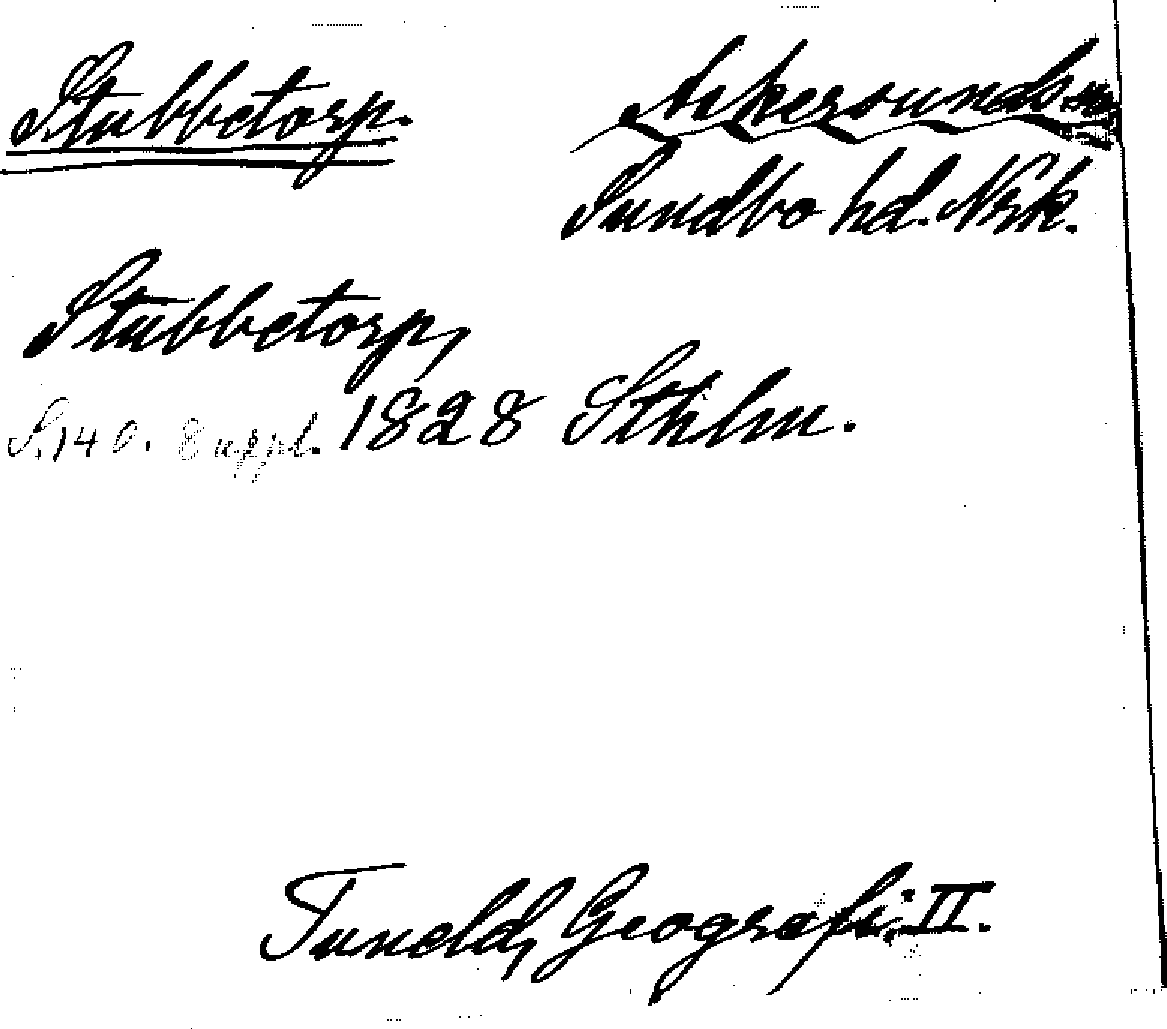 Stubbetorp. Askersunds
Sundbo hd. Nrk.
Stubbetorp,
S. 140. 8 uppl. 1828 Sthlm.
Tuneld, Geografi. II.